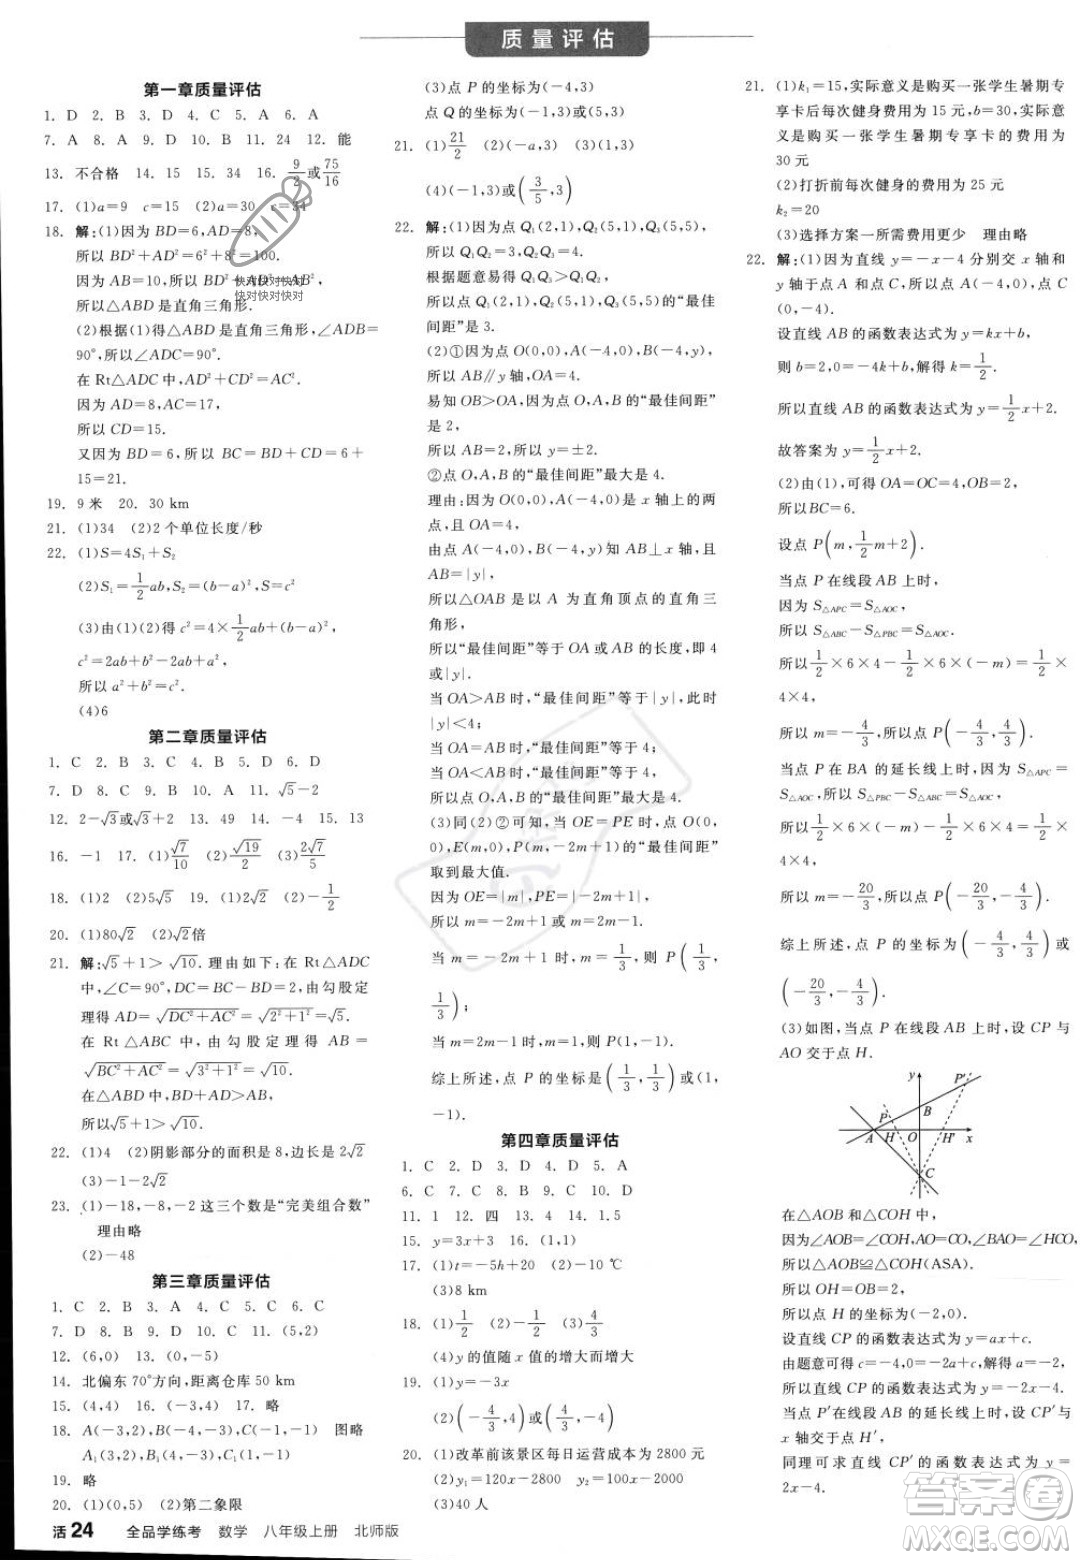 质量评估
第一章质量评估
1. D 2. B 3. D 4. C 5. A 6. A
7. A 8. A 9. D 10. B 11. 24 12. 能
13. 不合格 14. 15 15. 34 16. 9/2或75/16
17. (1)a=9 c=15 (2)a=16 c=34
18. 解:(1)因为 BD=6,AD=8,
所以 BD²+AD²=6²+8²=100.
因为 AB=10,所以 BD²+AD²=AB².
快对快对快对
快对快对快对
所以△ABD 是直角三角形.
(2)根据(1)得△ABD 是直角三角形,∠ADB=
90°,所以∠ADC=90°.
在 Rt△ADC 中,AD²+CD²=AC².
因为 AD=8,AC=17,
所以 CD=15.
又因为 BD=6,所以 BC=BD+CD=6+
15=21.
19. 9 米 20. 30 km
21. (1)34 (2)2 个单位长度/秒
22. (1)S=4S₁+S₂
(2)S₁=1/2ab,S₂=(b-a)²,S=c²
(3)由(1)(2)得 c²=4×1/2ab+(b-a)²,
c²=2ab+b²-2ab+a²,
所以 a²+b²=c²
(4)6
第二章质量评估
1. C 2. B 3. C 4. B 5. C 6. D
7. D 8. C 9. B 10. A 11. √5-2
12. 2-√3或√3+2 13. 49 14. -4 15. 13
16. -1 17. (1)√7/10 (2)√19/2 (3)2√7/5
18. (1)2 (2)5√5 19. (1)2√2 (2)-1/2
20. (1)80√2 (2)√2倍
21. 解:√5+1>√10. 理由如下:在 Rt△ADC
中,∠C=90°,DC=BC-BD=2,由勾股定
理得 AD=√(DC²+AC²)=√(2²+1²)=√5.
在 Rt△ABC 中,由勾股定理得 AB=
√(BC²+AC²)=√(3²+1²)=√10.
在△ABD中,AD+BD>AB,
所以√5+1>√10.
22. (1)4 (2)阴影部分的面积是 8,边长是 2√2
(3)-1-2√2
23. (1)-18,-8,-2 这三个数是“完美组合数”
理由略
(2)-48
第三章质量评估
1. C 2. B 3. A 4. C 5. C 6. C
7. D 8. B 9. D 10. C 11. (5,2)
12. (6,0) 13. (0,-5)
14. 北偏东 70°方向,距离仓库 50 km
15. (4,4) 16. (-3,4) 17. 略
18. A(-3,2),B(-4,-3),C(-1,-1) 图略
A₁(3,2),B₁(4,-3),C₁(1,-1)
19. 略
20. (1)(0,5) (2)第二象限
(3)点 P 的坐标为(-4,3)
点 Q 的坐标为(-1,3)或(5,3)
21. (1)21/2 (2)(-a,3) (3)(1,3)
(4)(-1,3)或(3/5,3)
22. 解:(1)因为点 Q₁(2,1),Q₂(5,1),Q₃(5,5),
所以 Q₁Q₂=3,Q₂Q₃=4.
根据题意易得 Q₁Q₃>Q₁Q₂,
所以点 Q₁(2,1),Q₂(5,1),Q₃(5,5)的“最佳
间距”是 3.
(2)①因为点 O(0,0),A(-4,0),B(-4,y),
所以 AB∥y 轴,OA=4.
易知 OB>OA,且点 O,A,B 的“最佳间距”
是 2,
所以 AB=2,所以 y=±2.
②点 O,A,B 的“最佳间距”最大是 4.
理由:因为点 O(0,0),A(-4,0)是 x 轴上的两
点,且 OA=4,
由点 A(-4,0),B(-4,y),知 AB⊥x 轴,AB
=|y|,
所以△OAB 是以 A 为直角顶点的直角三
角形,
所以“最佳间距”等于 OA 或 AB 的长度,即 4
或|y|.
当 OA>AB 时,“最佳间距”等于|y|,此时
|y|<4;
当 OA=AB 时,“最佳间距”等于 4;
当 OA<AB 时,“最佳间距”等于 4.
所以点 O,A,B 的“最佳间距”最大是 4.
(3)同(2)②可知,当 OE=PE 时,点 O(0,
0),E(m,0),P(m,-2m+1)的“最佳间距”
取到最大值.
因为 OE=|m|,PE=|-2m+1|,
所以 m=-2m+1 或 m=2m-1,
所以 m=1/3或 m=1.
当 m=1/3时,-2m+1=1/3,则 P(1/3,
1/3);
当 m=1 时,-2m+1=-1,则 P(1,-1).
综上所述,点 P 的坐标为(1/3,1/3)或(1,
-1).
第四章质量评估
1. C 2. D 3. D 4. D 5. A
6. C 7. C 8. B 9. C 10. D
11. 1 12. 四 13. 4 14. 1.5
15. y=3x+3 16. (1,1)
17. (1)t=-5h+20 (2)-10 ℃
(3)8 km
18. (1)1/2 (2)-1/2 (3)1/2
(4)y 的值随 x 值的增大而增大
19. (1)y=-3x
(2)(-4/3,4)或(4/3,-4)
20. (1)改革前该景区每日运营成本为 2800 元
(2)y₁=120x-2800 y₂=100x-2000
(3)40 人
21. (1)k₁=15,实际意义是购买一张学生暑期专
享卡后每次健身费用为 15 元,b=30,实际
意义是购买一张学生暑期专享卡的费用为
30 元
(2)打折前每次健身的费用为 25 元
k₂=20
(3)选择方案一所需费用更少 理由略
22. 解:(1)因为直线 y=-x-4 分别交 x 轴和
y 轴于点 A 和点 C,所以点 A(-4,0),点 C
(0,-4).
设直线 AB 的函数表达式为 y=kx+b,
则 b=2,0=-4k+b,解得 k=1/2.
所以直线 AB 的函数表达式为 y=1/2x+2.
故答案为 y=1/2x+2.
(2)由(1),可得 OA=OC=4,OB=2,
所以BC=6.
设点 P(m,1/2m+2).
当点 P 在线段 AB 上时,
因为 S△APC=S△AOC,
所以 S△ABC-S△PBC=S△AOC.
所以1/2×6×4-1/2×6×(-m)=1/2×
4×4,
所以 m=-4/3,所以点 P(-4/3,4/3).
当点 P 在 BA 的延长线上时,因为 S△APC=
S△AOC,所以 S△PBC-S△ABC=S△AOC,
所以1/2×6×(-m)-1/2×6×4=1/2×
4×4,
所以 m=-20/3,所以点 P(-20/3,-4/3).
综上所述,点 P 的坐标为(-4/3,4/3)或
(-20/3,-4/3).
(3)如图,当点 P 在线段 AB 上时,设 CP 与
AO 交于点 H.
y P′
P B
A H O H′ x
C
在△AOB 和△COH 中,
因为∠AOB=∠COH,AO=CO,∠BAO=∠HCO,
所以△AOB≌△COH(ASA).
所以 OH=OB=2,
所以点 H 的坐标为(-2,0).
设直线 CP 的函数表达式为 y=ax+c.
由题意可得 c=-4,-2a+c=0,解得 a=-2,
所以直线 CP 的函数表达式为 y=-2x-4.
当点 P′在 AB 的延长线上时,设CP′与
x 轴交于点 H′.
同理可求直线 CP′的函数表达式为 y=
2x-4.
活 24 全品学练考 数学 八年级上册 北师版
答案圈
MXQE.COM